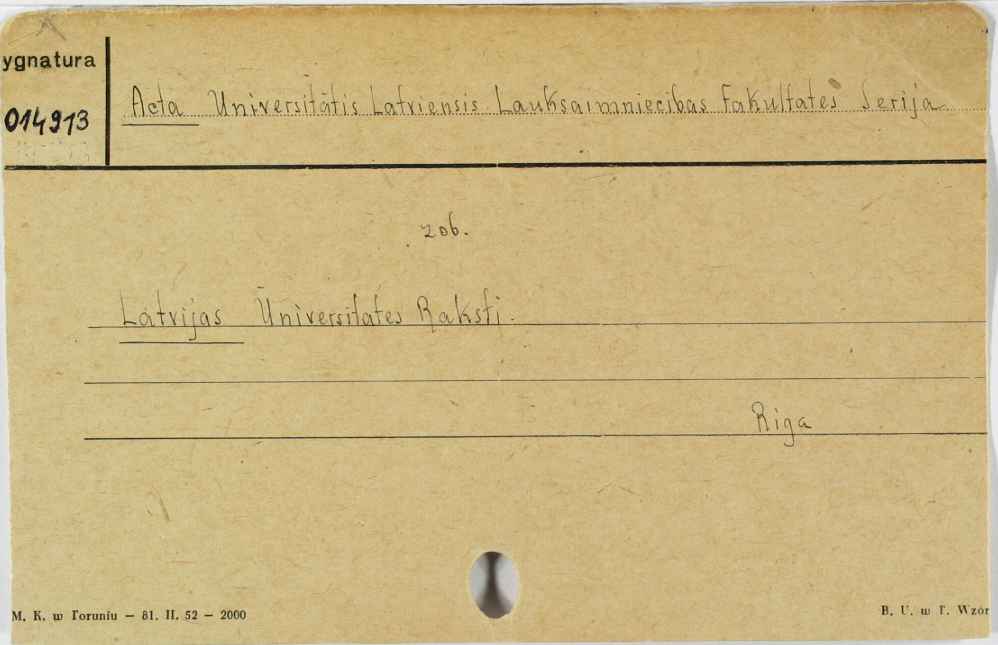 ygnatura
014913
Acta Universitatis Latviensis Lauksaimniecibas Fakultates Serija
zob.
Latvijas Universitates Raksti.
Riga
M. K. w Toruniu — 81. II. 52 — 2000
B. U. w T. Wzór